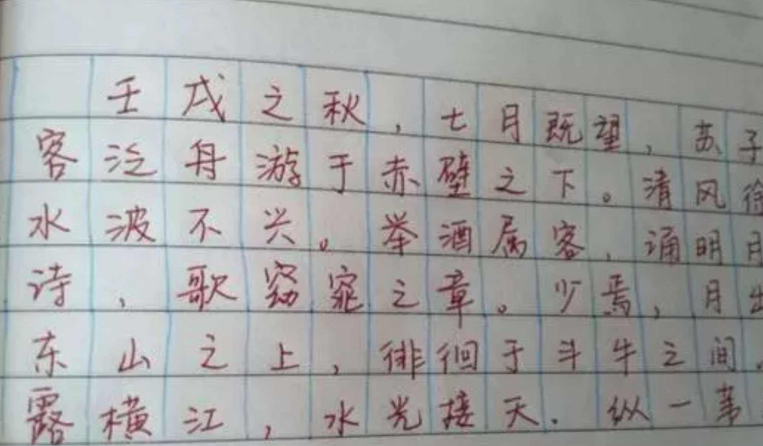 壬戌之秋，七月既望，苏子
客泛舟游于赤壁之下。清风徐
水波不兴。举酒属客，诵明月
诗，歌窈窕之章。少焉，月出
东山之上，徘徊于斗牛之间。
露横江，水光接天。纵一苇